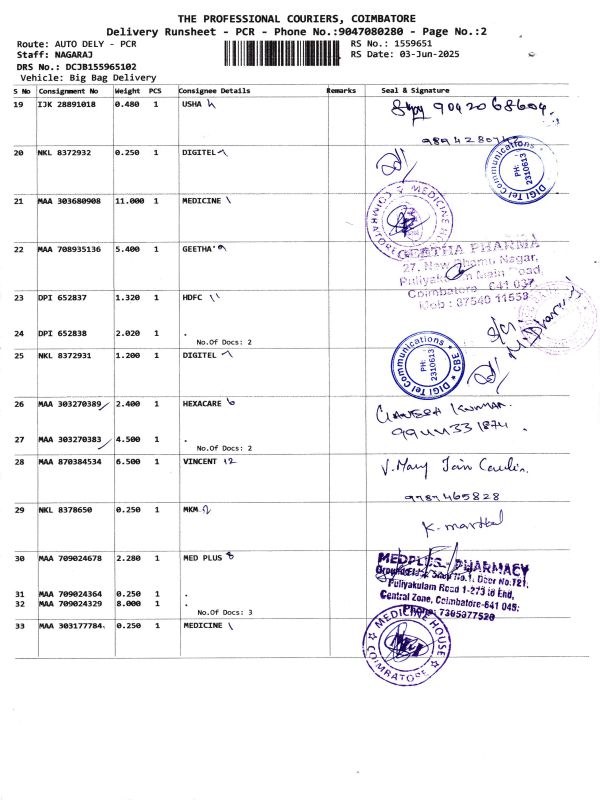 THE PROFESSIONAL COURIERS, COIMBATORE
Delivery Runsheet - PCR - Phone No.:9047080280 - Page No.:2
Route: AUTO DELY - PCR RS No.: 1559651
Staff: NAGARAJ RS Date: 03-Jun-2025
DRS No.: DCJB155965102
Vehicle: Big Bag Delivery
S No Consignment No Weight PCS Consignee Details Remarks Seal & Signature
19 IJK 28891018 0.480 1 USHA 9042068604
9894280742
20 NKL 8372932 0.250 1 DIGITEL
DIGI Tel Communications PH: 2310613
21 MAA 303680908 11.000 1 MEDICINE
MEDICINE COIMBATORE
22 MAA 708935136 5.400 1 GEETHA'
GEETHA PHARMA
27, New Dhamu Nagar,
Puliyakulam Main Road,
Coimbatore - 641 037.
Mob : 87540 11553
23 DPI 652837 1.320 1 HDFC
24 DPI 652838 2.020 1 .
No.Of Docs: 2
25 NKL 8372931 1.200 1 DIGITEL
DIGI Tel Communications CBE PH: 2310613
26 MAA 303270389 2.400 1 HEXACARE 6
27 MAA 303270383 4.500 1 .
No.Of Docs: 2
28 MAA 870384534 6.500 1 VINCENT 12 V. Mary
9787465828
29 NKL 8378650 0.250 1 MKM 2
30 MAA 709024678 2.280 1 MED PLUS 8
MEDPLUS - PHARMACY
No.1, Door No:121,
Puliyakulam Road 1-273 to End,
Central Zone, Coimbatore-641 045.
Phone: 7305377520
31 MAA 709024364 0.250 1 .
32 MAA 709024329 8.000 1 .
No.Of Docs: 3
33 MAA 303177784 0.250 1 MEDICINE
MEDICINE HOUSE COIMBATORE